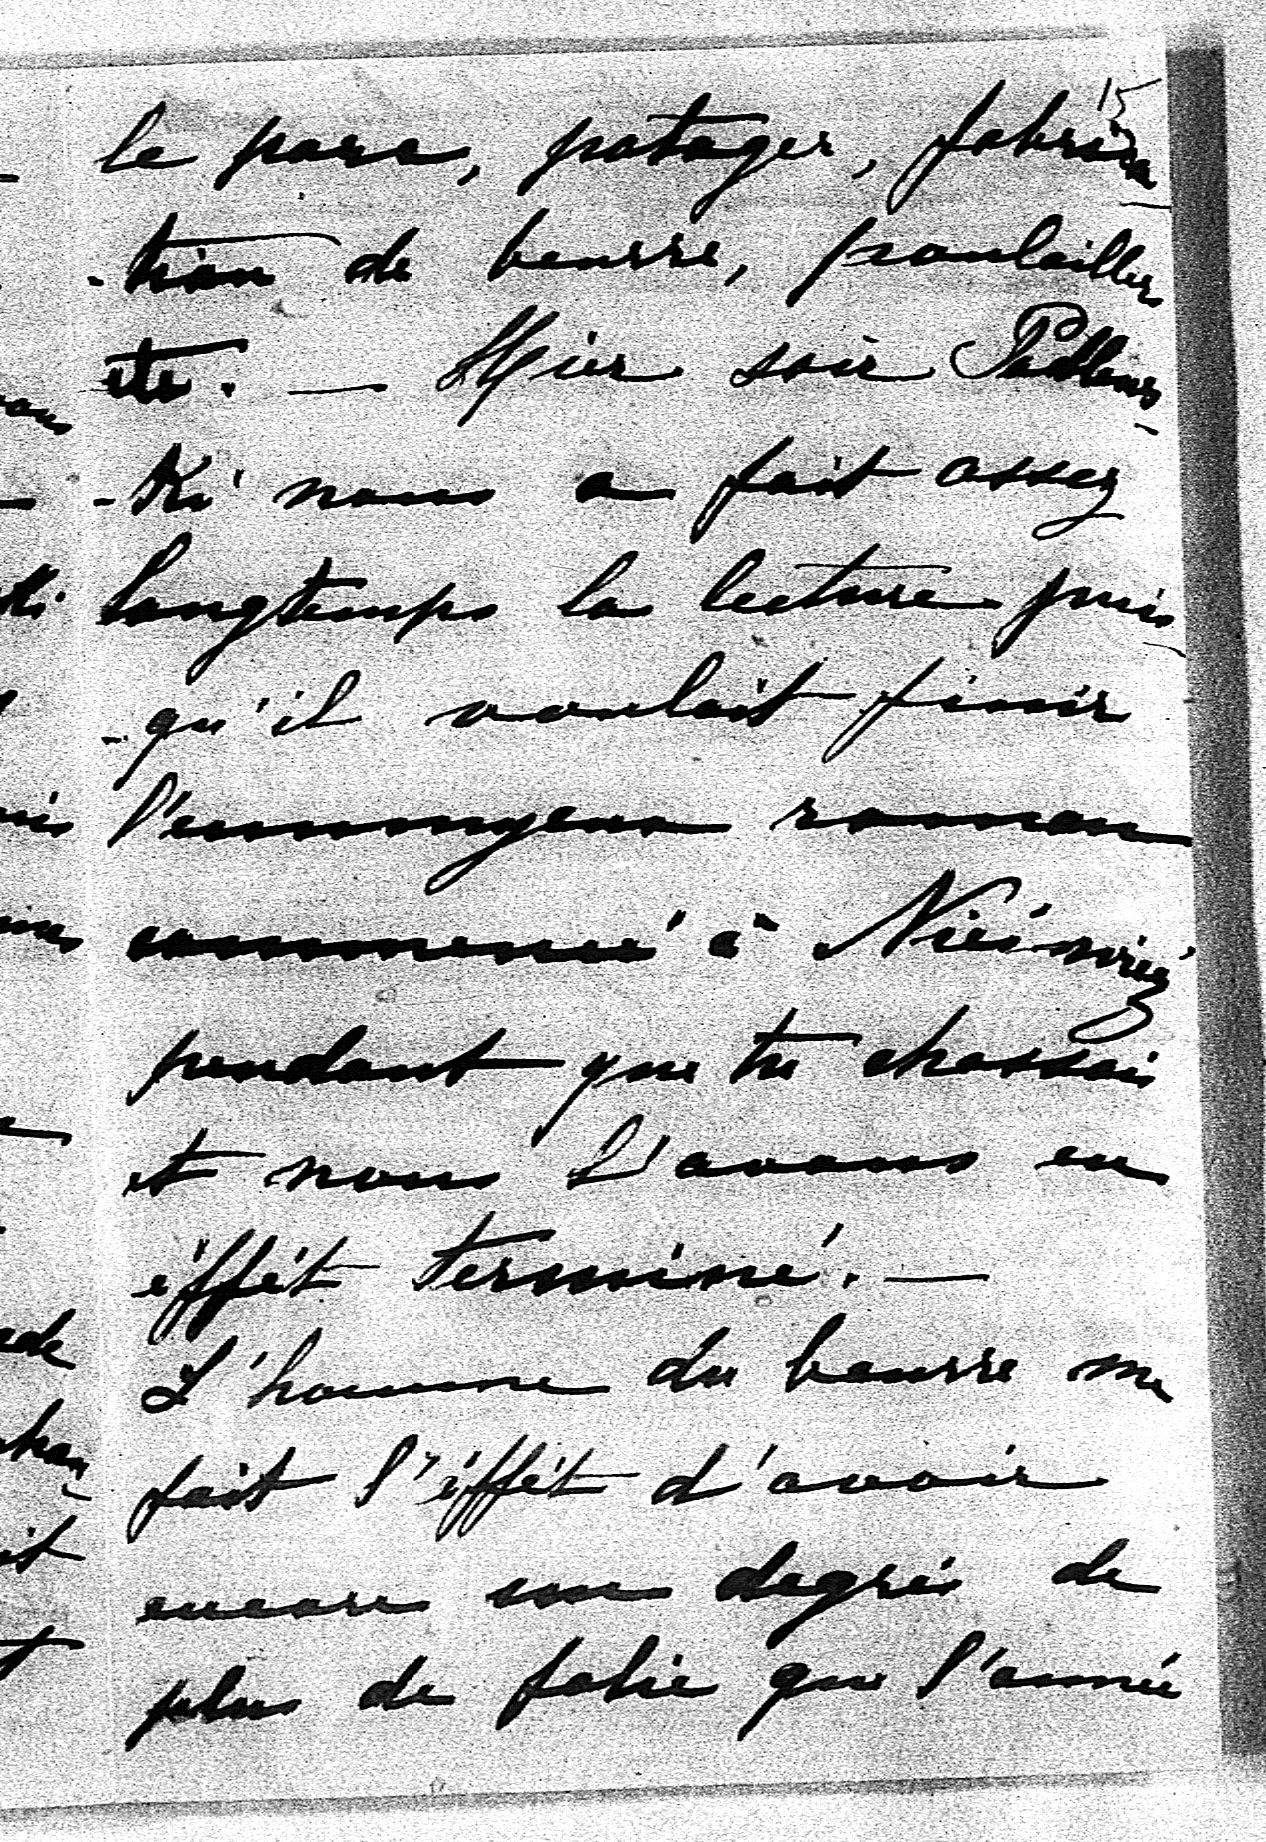 15
le parc, potager, fabrica
-tion de beurre, poulailler
etc. — Hier soir Padlews-
-ki nous a fait assez
longtemps la lecture puis-
-qu'il voulait finir
l'ennuyeux roman
commencé à Nieśwież
pendant que tu chassais
et nous l'avons en
éffét terminé. —
L'homme du beurre me
fait l'éffét d'avoir
encore un degrés de
plus de folie que l'année